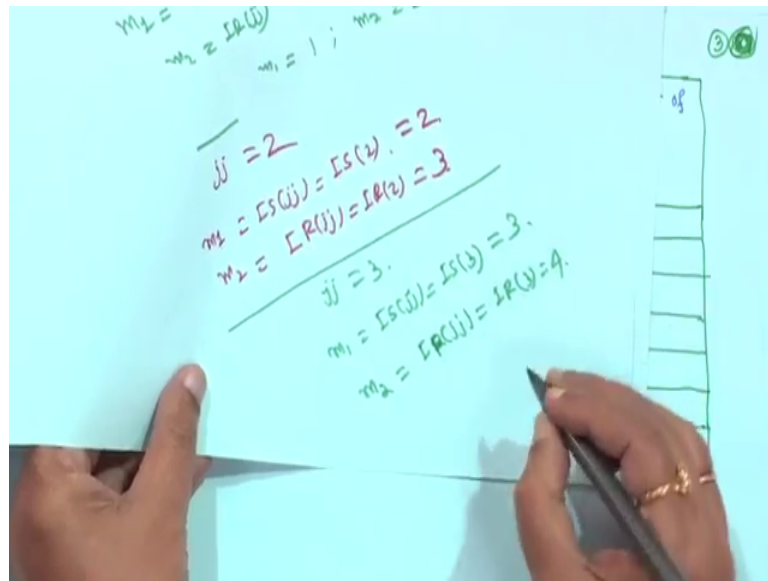 m₁ =
m₂ = IR(jj)
m₁ = 1 ; m₂ =
jj = 2
m₁ = IS(jj) = IS(2). = 2
m₂ = IR(jj) = IR(2) = 3
jj = 3.
m₁ = IS(jj) = IS(3) = 3.
m₂ = IR(jj) = IR(3) = 4.
3
of